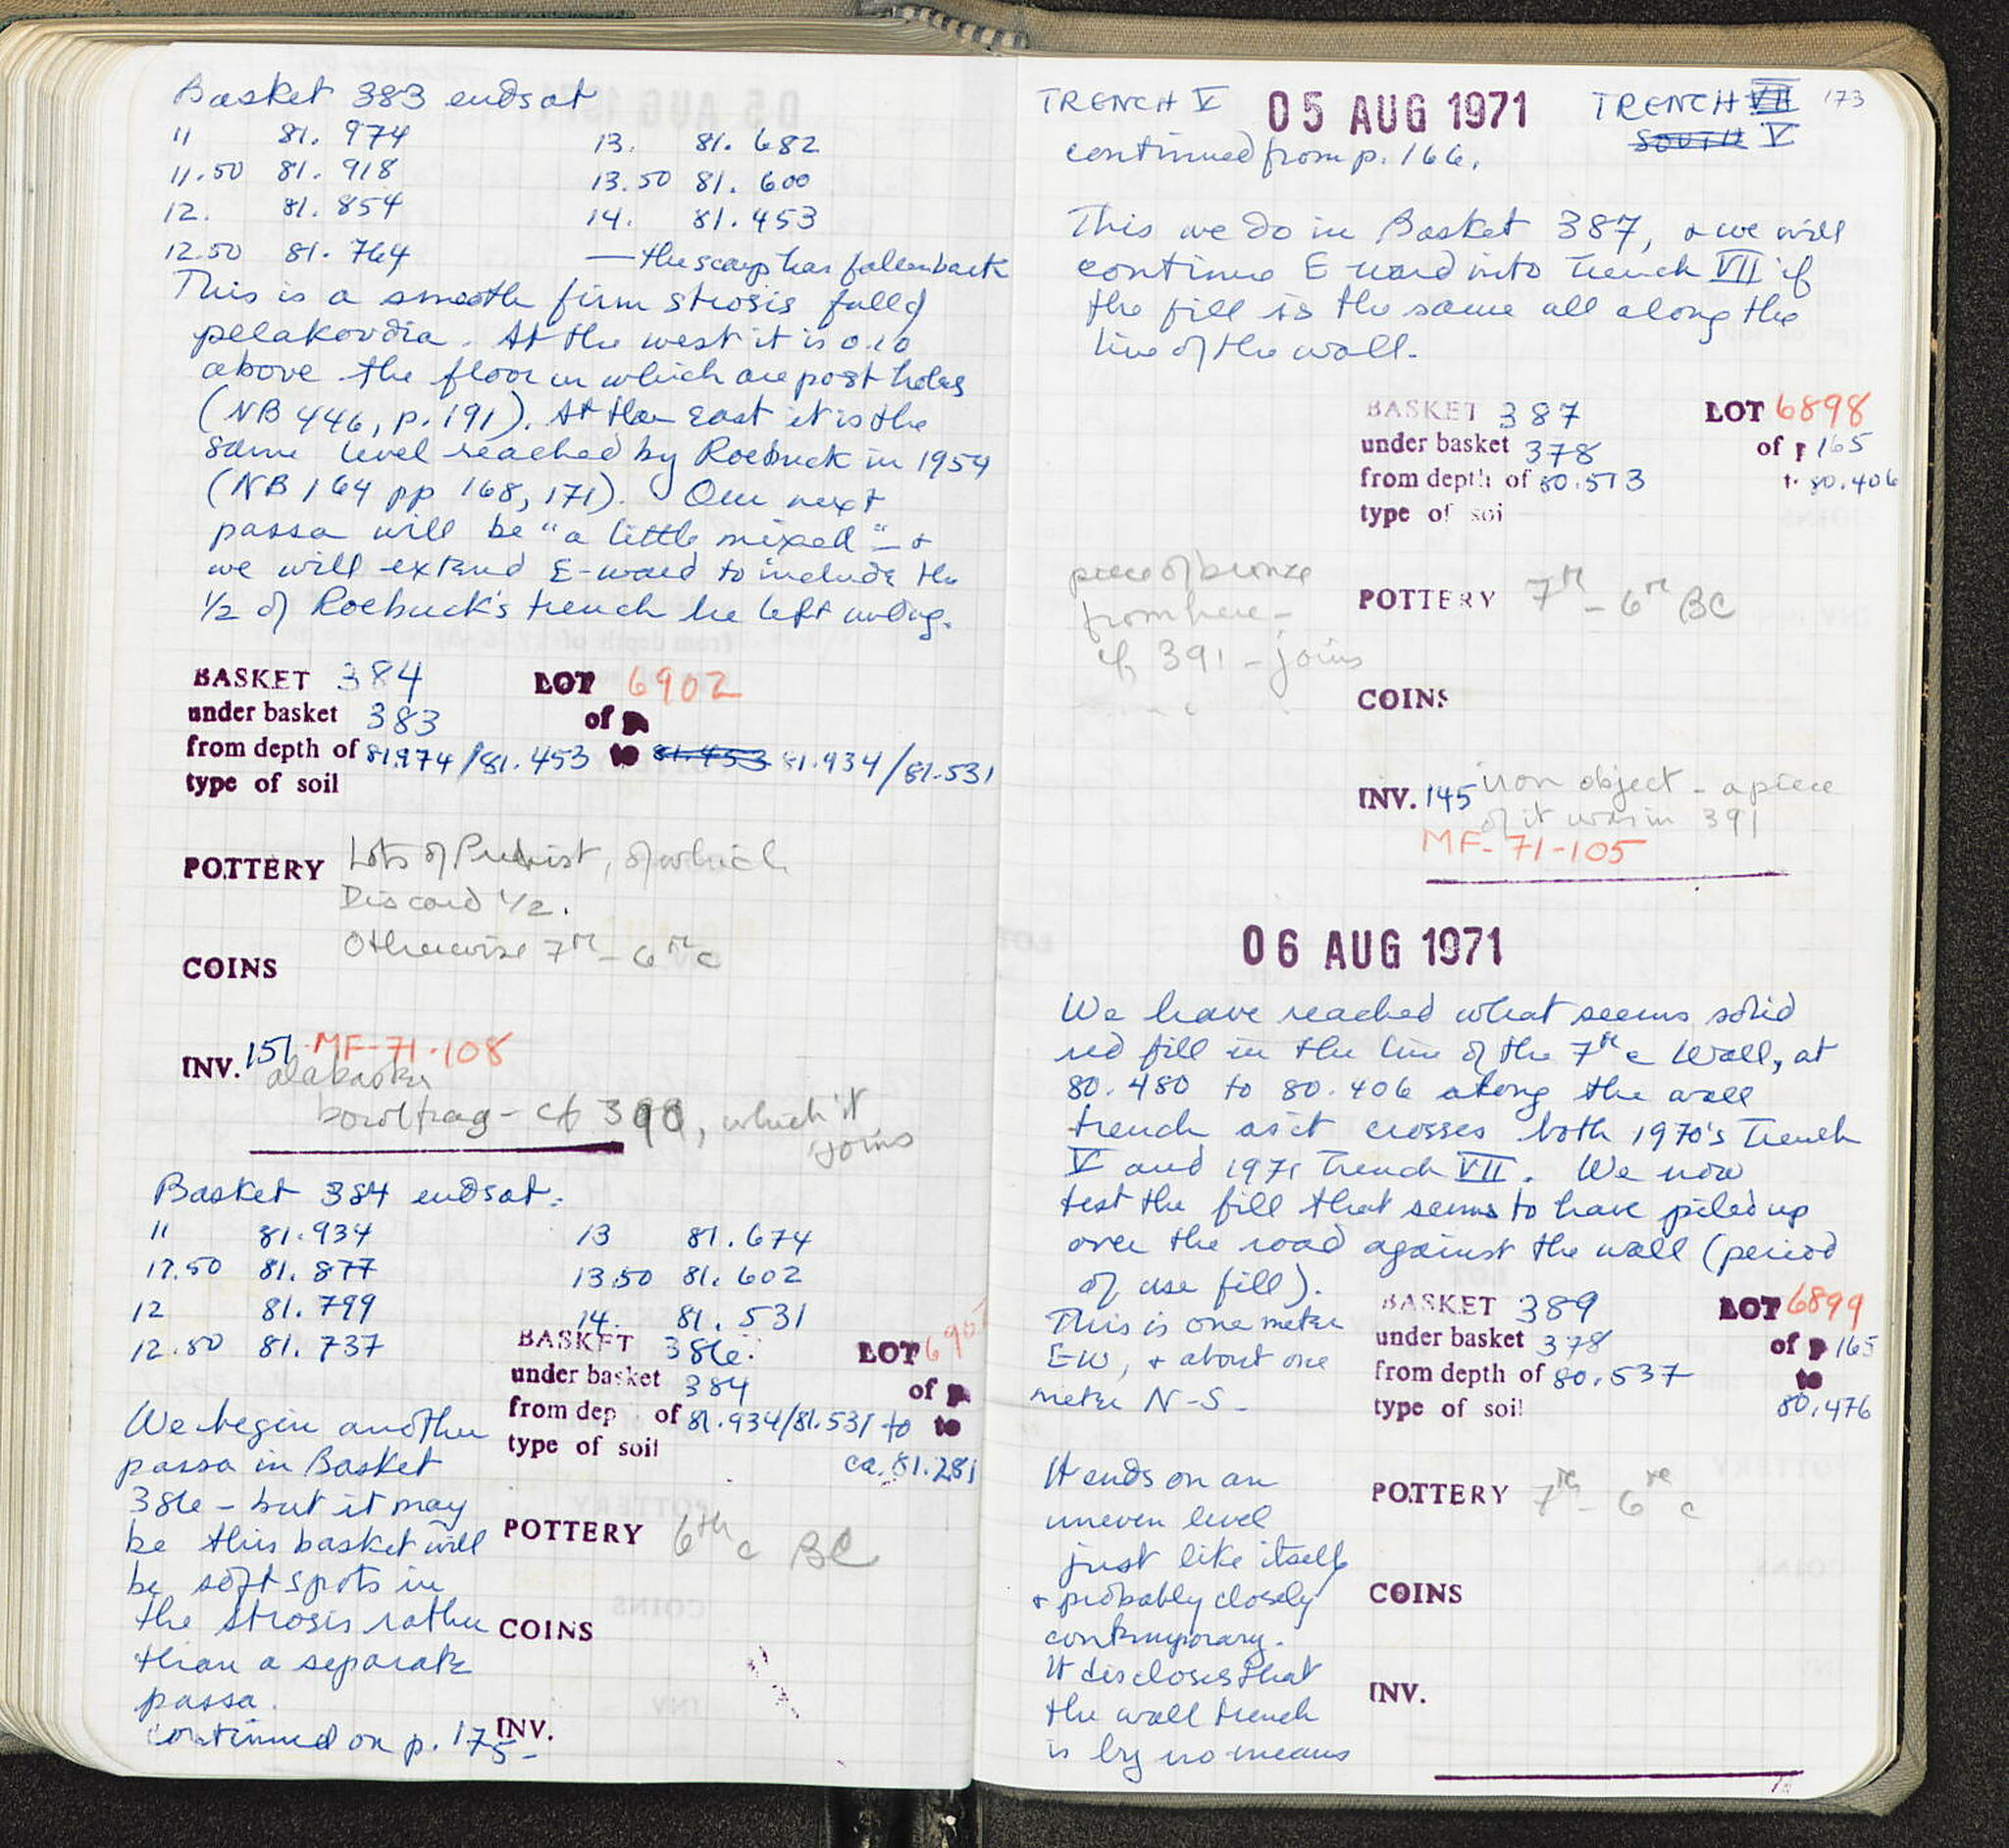 Basket 383 ends at
11 81.974 13. 81.682
11.50 81.918 13.50 81.600
12. 81.854 14. 81.453
12.50 81.764 — the scarp has fallen back
This is a smooth firm strosis full of
pelakovdia. At the west it is 0.10
above the floor in which are post holes
(NB 446, p. 191). At the east it is the
same level reached by Roebuck in 1954
(NB 164 pp 168, 171). Our next
passa will be "a little mixed" — &
we will extend E-ward to include the
1/2 of Roebuck's trench he left undug.
BASKET 384 LOT 6902
under basket 383 of p
from depth of 81.974/81.453 to 81.453 81.934/81.531
type of soil
POTTERY Lots of Prehist, of which
Discard 1/2.
Otherwise 7th – 6th c
COINS
INV. 151 MF-71-108
alabaster
bowl frag – cf 390, which it
joins
Basket 384 ends at:
11 81.934 13 81.674
11.50 81.877 13.50 81.602
12 81.799 14. 81.531
12.50 81.737
BASKET 386 LOT
under basket 384 of p
from dep of 81.934/81.531 to to
type of soil ca. 81.281
We begin another
passa in Basket
386 – but it may
be this basket will
be soft spots in
the strosis rather
than a separate
passa.
continued on p. 175 –
POTTERY 6th c BC
COINS
INV.
TRENCH V 05 AUG 1971 TRENCH VII 173
SOUTH V
continued from p. 166.
This we do in Basket 387, & we will
continue E ward into Trench VII if
the fill is the same all along the
line of the wall.
BASKET 387 LOT 6898
under basket 378 of p 165
from depth of 80.573 t. 80.406
type of soi
piece of bronze
from here –
cf. 391 – joins
POTTERY 7th – 6th BC
COINS
INV. 145 iron object – a piece
of it was in 391
MF-71-105
06 AUG 1971
We have reached what seems solid
red fill in the line of the 7th c Wall, at
80.480 to 80.406 along the wall
trench as it crosses both 1970's Trench
V and 1971 Trench VII. We now
test the fill that seems to have piled up
over the road against the wall (period
of use fill).
This is one meter
E-W, & about one
meter N-S –
BASKET 389 LOT 6899
under basket 378 of p 165
from depth of 80.537 to
type of soil 80.476
It ends on an
uneven level
just like itself
& probably closely
contemporary.
It discloses that
the wall trench
is by no means
POTTERY 7th – 6th c
COINS
INV.